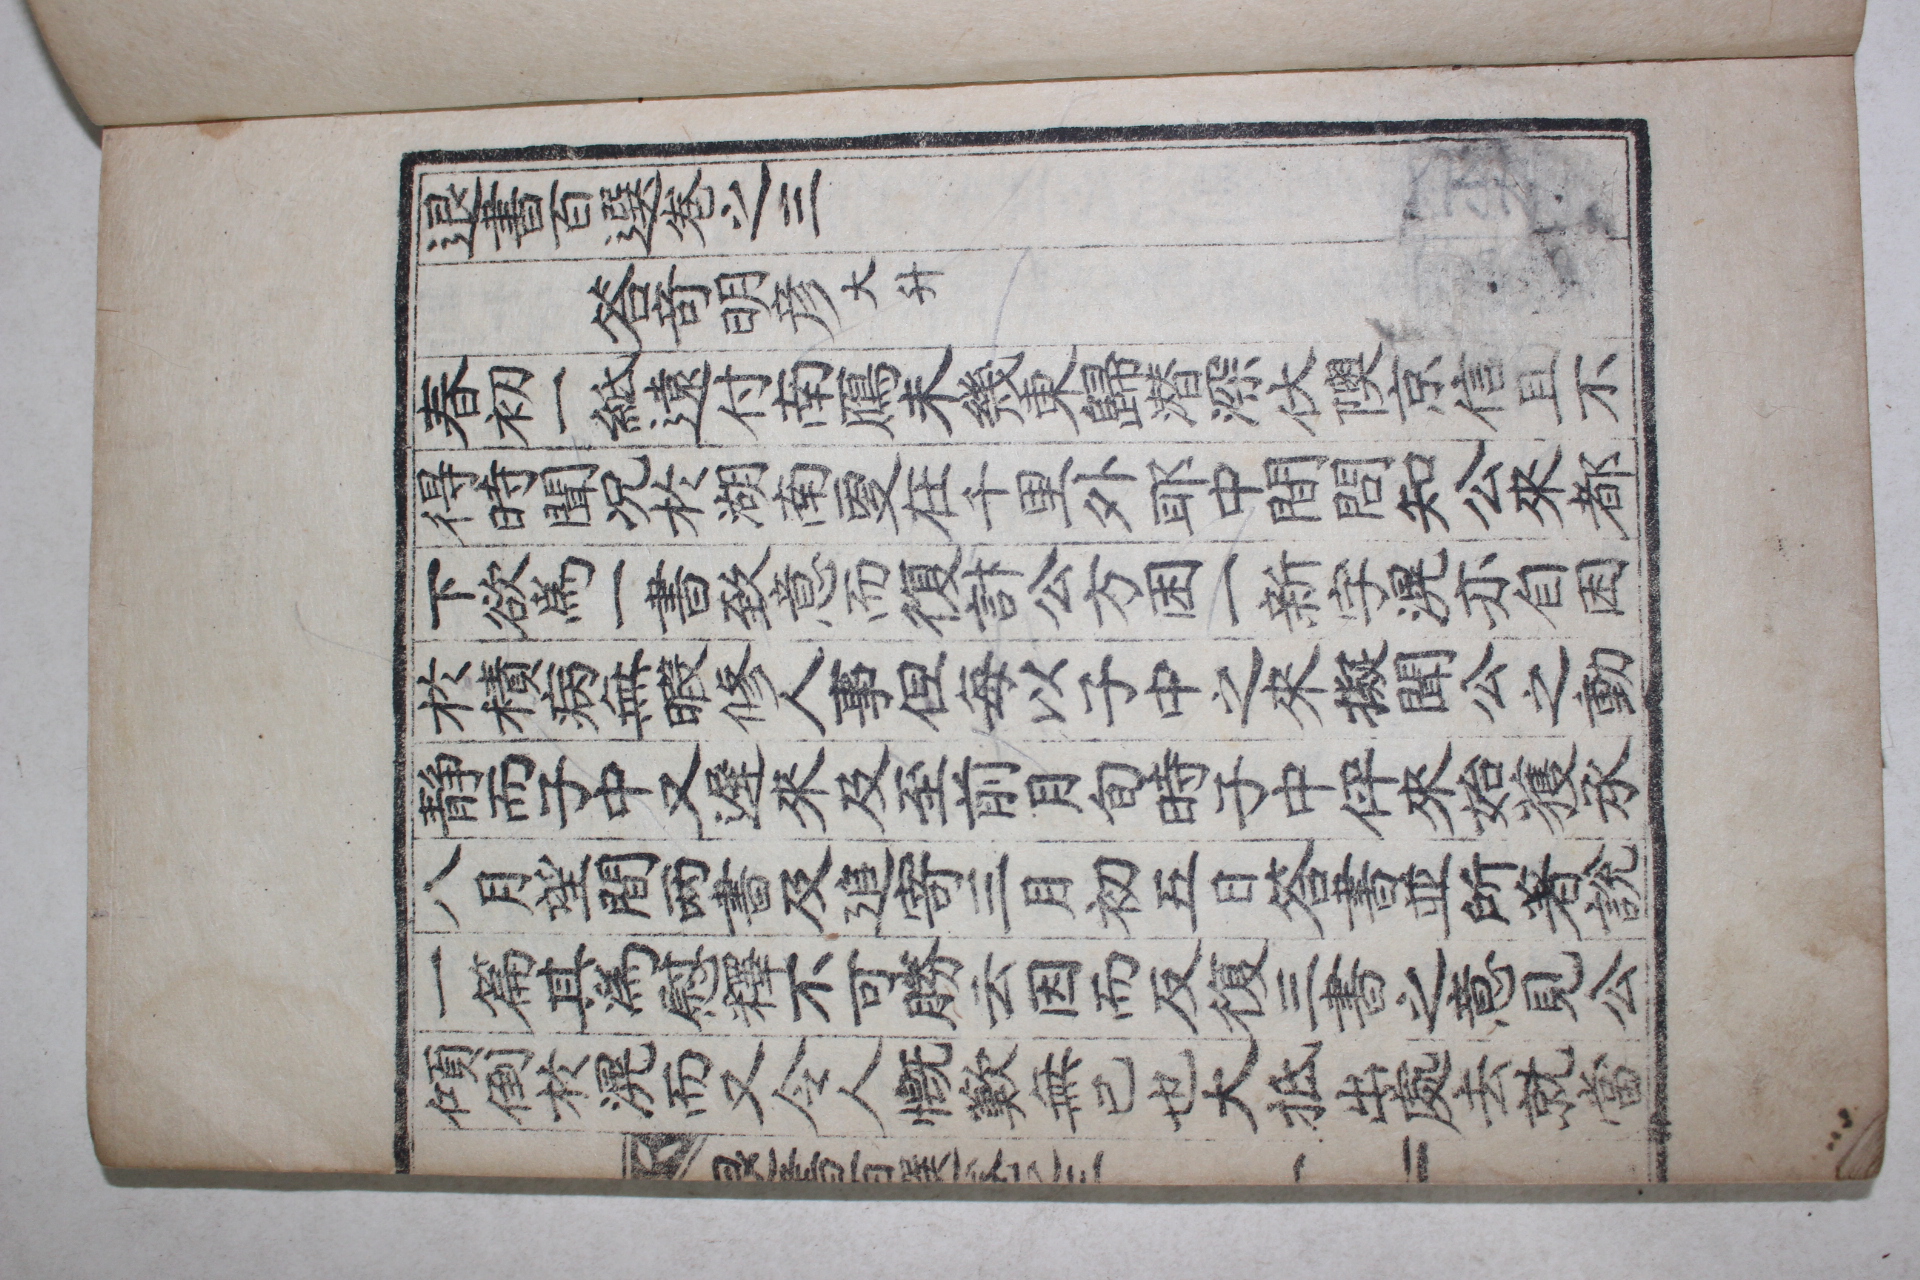 退書百選卷之三
答奇明彦大升
春初一紙遠付南鴈未幾東歸潜深伏隩京信且不
得時聞況於湖南夐在千里外耶中間聞知公來都
下欲爲一書致意而復計公方困一新字滉亦自困
於積病無暇修人事但每以子中之來擬聞公之動
靜而子中又遲來及至前月旬時子中伻來始獲承
八月望間两書及追寄三月初五日答書並所著說
一篇其爲慰釋不可勝云因而反復三書之意見公
傾倒於滉而又令人慨歎無已也大抵出處去就當
退書百選卷之三 一 二